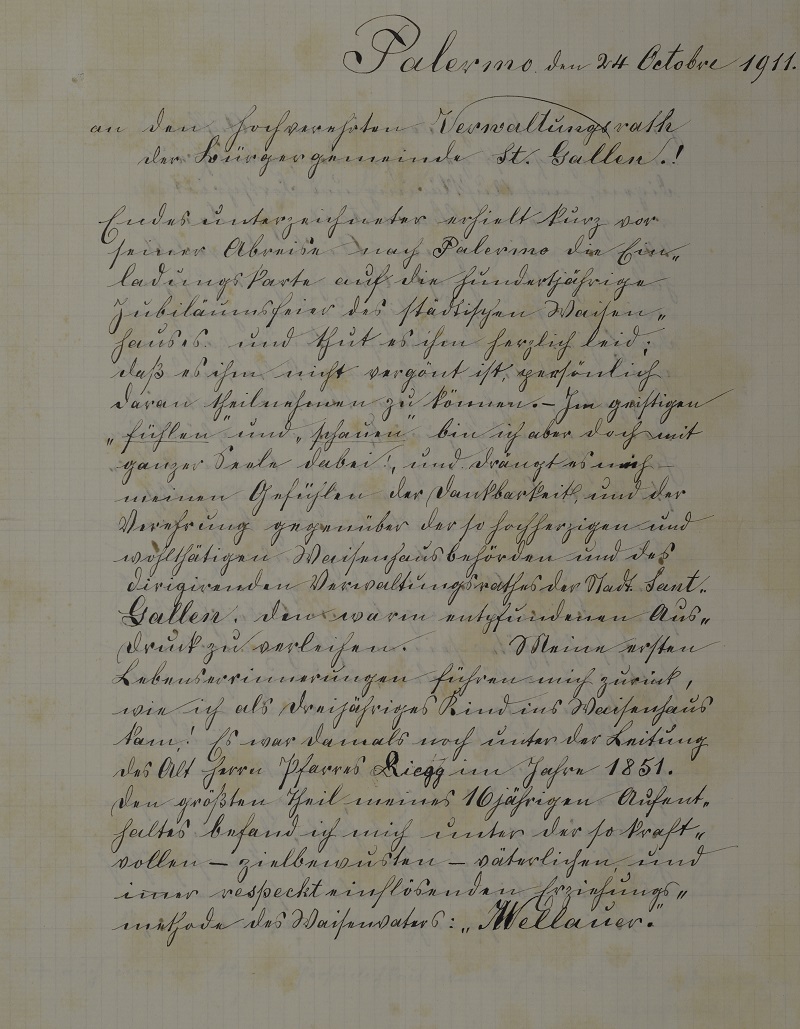 Palermo den 24 Octobre 1911.
an den hochverehrten Verwaltungsrath
der Bürgergemeinde St. Gallen.!
Endes unterzeichneter erhielt kurz vor
seiner Abreise nach Palermo die Ein„
ladungskarte auf die hundertjährige
Jubiläumsfeier des städtischen Waisen„
hauses. und thut es ihm herzlich leid;
daß es ihm nicht vergönt ist, persönlich
daran theilnehmen zu können. – Im geistigen
„fühlen" und „schauen" bin ich aber doch mit
ganzer Seele dabei!, und drängt es mich –
meinen Gefühlen der Dankbarkeit, und der
Verehrung gegenüber der so hochherzigen und
wohlthätigen Waisenhausbehörden und des
dirigirenden Verwaltungsrathes der Stadt Sant.
Gallen, den warm entpfundenen Aus„
druck zu verleihen. Meine ersten
Lebenserrinnerungen führen mich zurück,
wie ich als dreijähriges Kind ins Waisenhaus
kam! Es war damals noch unter der Leitung
des Alt Herrn Pfarres Riegg im Jahre 1851.
den größten Theil meines 16jährigen Aufent„
haltes befand ich mich unter der so kraft„
vollen – zielbewusten – väterlichen und
imer respeckt einflösenden Erziehungs„
methode des Waisenvaters: „Wellauer."